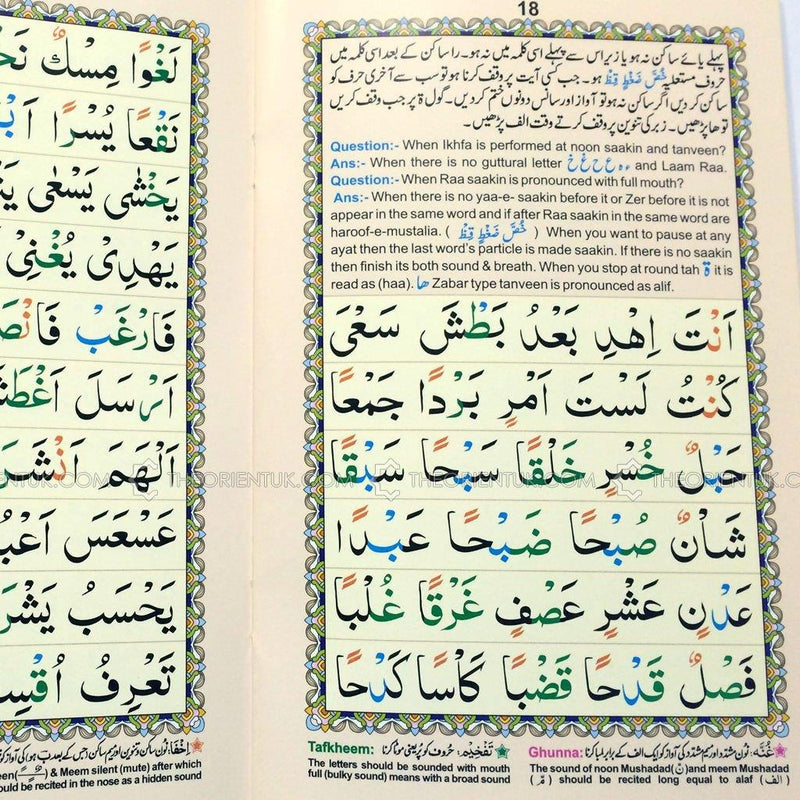 18
پہلے یائے ساکن نہ ہو یا زیر اس سے پہلے اسی کلمہ میں نہ ہو۔ را ساکن کے بعد اسی کلمہ میں
حروف مستعلیہ خُصَّ ضَغْطٍ قِظْ ہو۔ جب کسی آیت پر وقف کرنا ہو تو سب سے آخری حرف کو
ساکن کر دیں اگر ساکن نہ ہو تو آواز اور سانس دونوں ختم کر دیں۔ گول ۃ پر جب وقف کریں
تو ھا پڑھیں۔ زبر کی تنوین پر وقف کرتے وقت الف پڑھیں۔
Question:- When Ikhfa is performed at noon saakin and tanveen?
Ans:- When there is no guttural letter ء ہ ع ح غ خ and Laam Raa.
Question:- When Raa saakin is pronounced with full mouth?
Ans:- When there is no yaa-e- saakin before it or Zer before it is not
appear in the same word and if after Raa saakin in the same word are
haroof-e-mustalia. ( خُصَّ ضَغْطٍ قِظْ ) When you want to pause at any
ayat then the last word's particle is made saakin. If there is no saakin
then finish its both sound & breath. When you stop at round tah ۃ it is
read as (haa). ھا Zabar type tanveen is pronounced as alif.
اَنْتَ اِهْدِ بَعْدُ بَطْشَ سَعْىَ
كُنْتُ لَسْتَ اَمْرٍ بَرْدًا جَمْعًا
حَبْلٌ خُسْرٍ خَلْقًا سَبْحًا سَبْقًا
شَاْنٌ صُبْحًا ضَبْحًا عَبْدًا
عَدْنٍ عَشْرٍ عَصْفٍ غَرْقًا غُلْبًا
فَصْلٌ قَدْحًا قَضْبًا كَاْسًا كَدْحًا
Tafkheem: تَفْخِیْم: حُروف کو پُر یعنی موٹا کرنا
The letters should be sounded with mouth
full (bulky sound) means with a broad sound
Ghunna: غُنَّہ: نون مشدّد اور میم مشدّد کی آواز کو ایک الف کے برابر لمبا کرنا
The sound of noon Mushadad (نّ) and meem Mushadad
(مّ) should be recited long equal to alaf (الف)
لَغْوًا مِسْكٌ
نَقْعًا يُسْرًا
يَخْشٰى يَسْعٰى
يَهْدِىْ يُغْنِىْ
فَارْغَبْ
اَرْسَلَ
اَلْهَمَ
عَسْعَسَ
يَحْسَبُ
تَعْرِفُ
& Meem silent (mute) after which
ould be recited in the nose as a hidden sound
THEORIENTUK.COM THEORIENTUK.COM